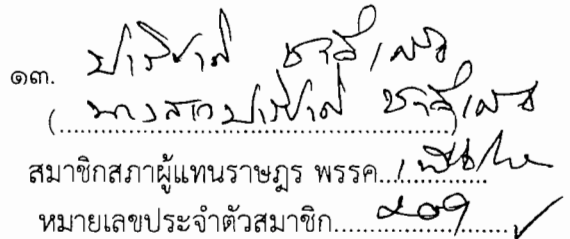 ๑๓. ปาริชาติ ชาลีเครือ
(นางสาวปาริชาติ ชาลีเครือ)
สมาชิกสภาผู้แทนราษฎร พรรค เพื่อไทย
หมายเลขประจำตัวสมาชิก ๒๐๗